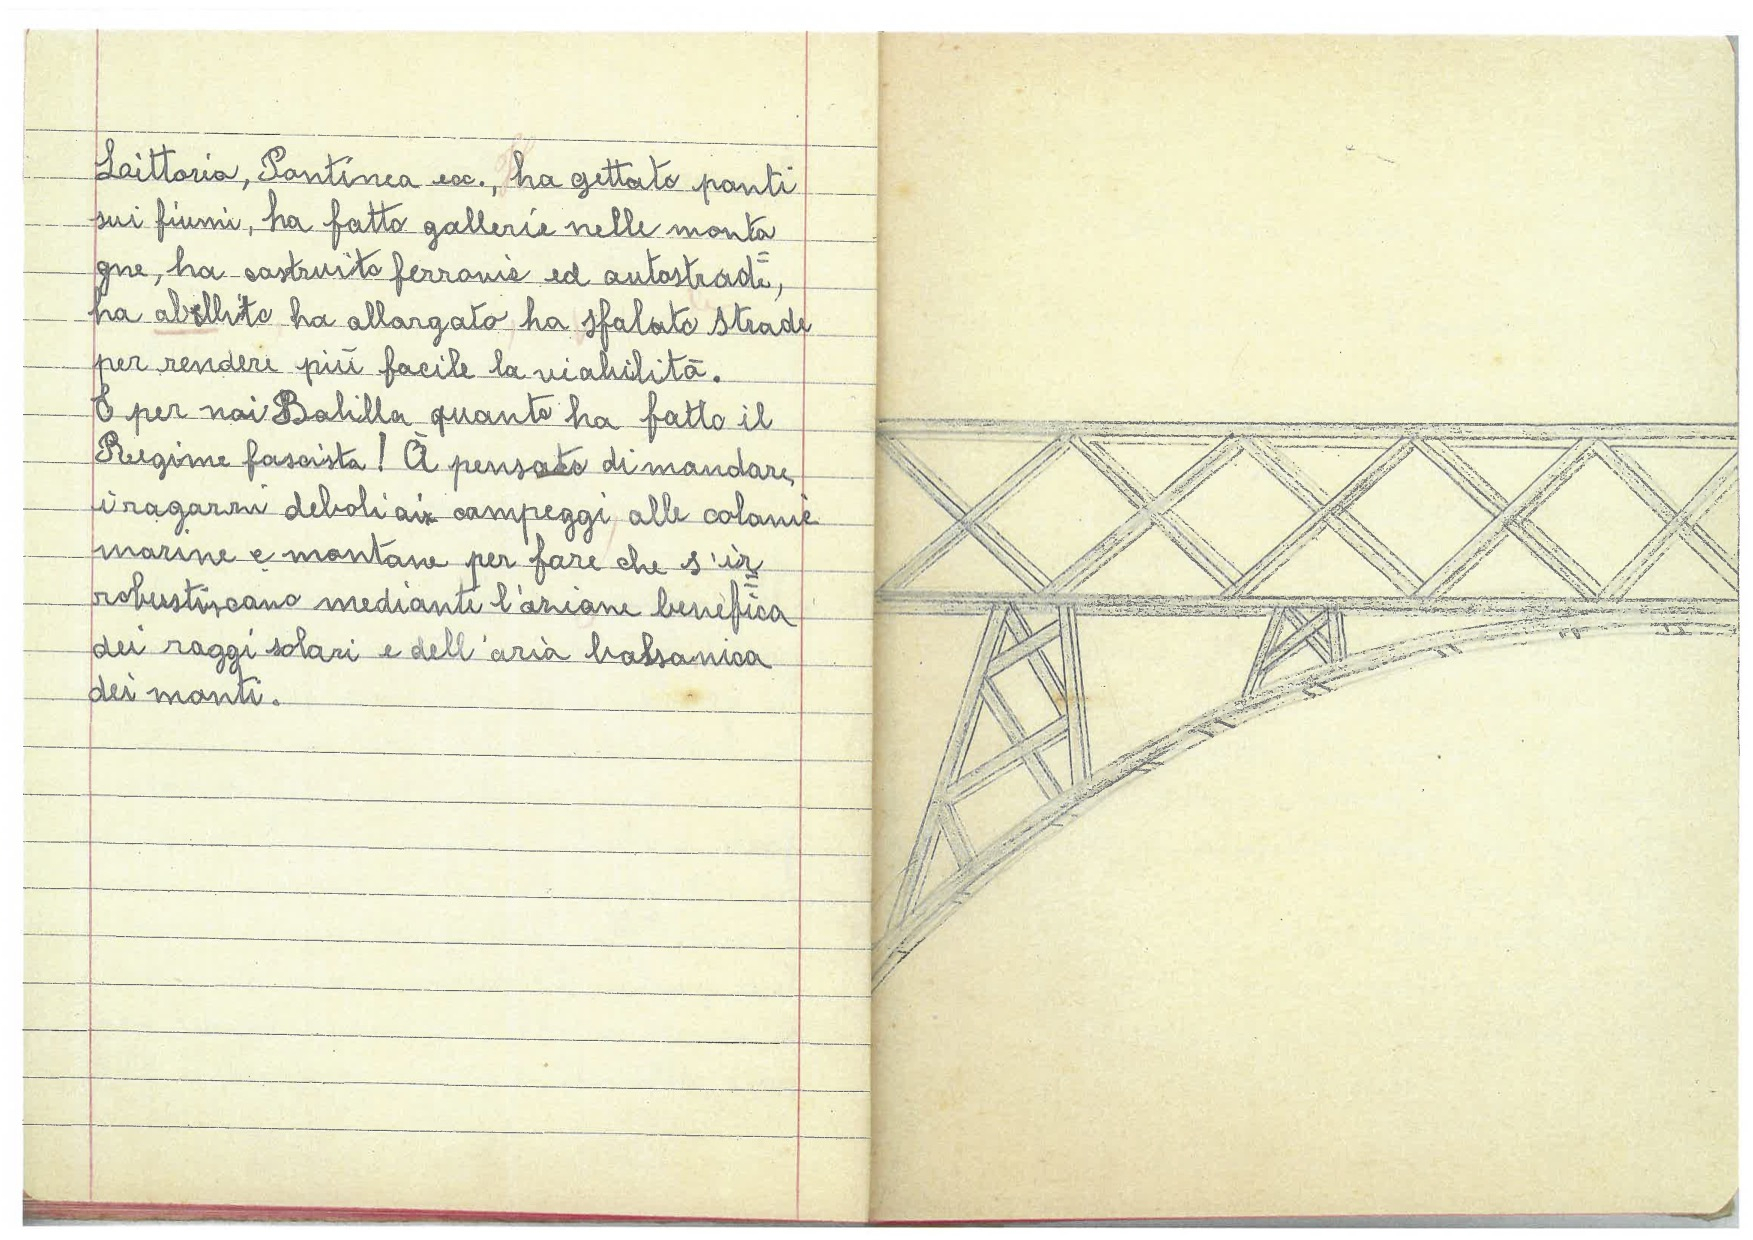 Littoria, Pontinea ecc., ha gettato ponti
sui fiumi, ha fatto gallerie nelle monta
gne, ha costruito ferrovie ed autostrade,
ha abellito ha allargato ha sfalato strade
per rendere più facile la viabilità.
E per noi Balilla quanto ha fatto il
Regime fascista! À pensato di mandare
i ragazzi deboli ai campeggi alle colonie
marine e montane per fare che s'ir
robustiscano mediante l'azione benefica
dei raggi solari e dell'aria balsanica
dei monti.